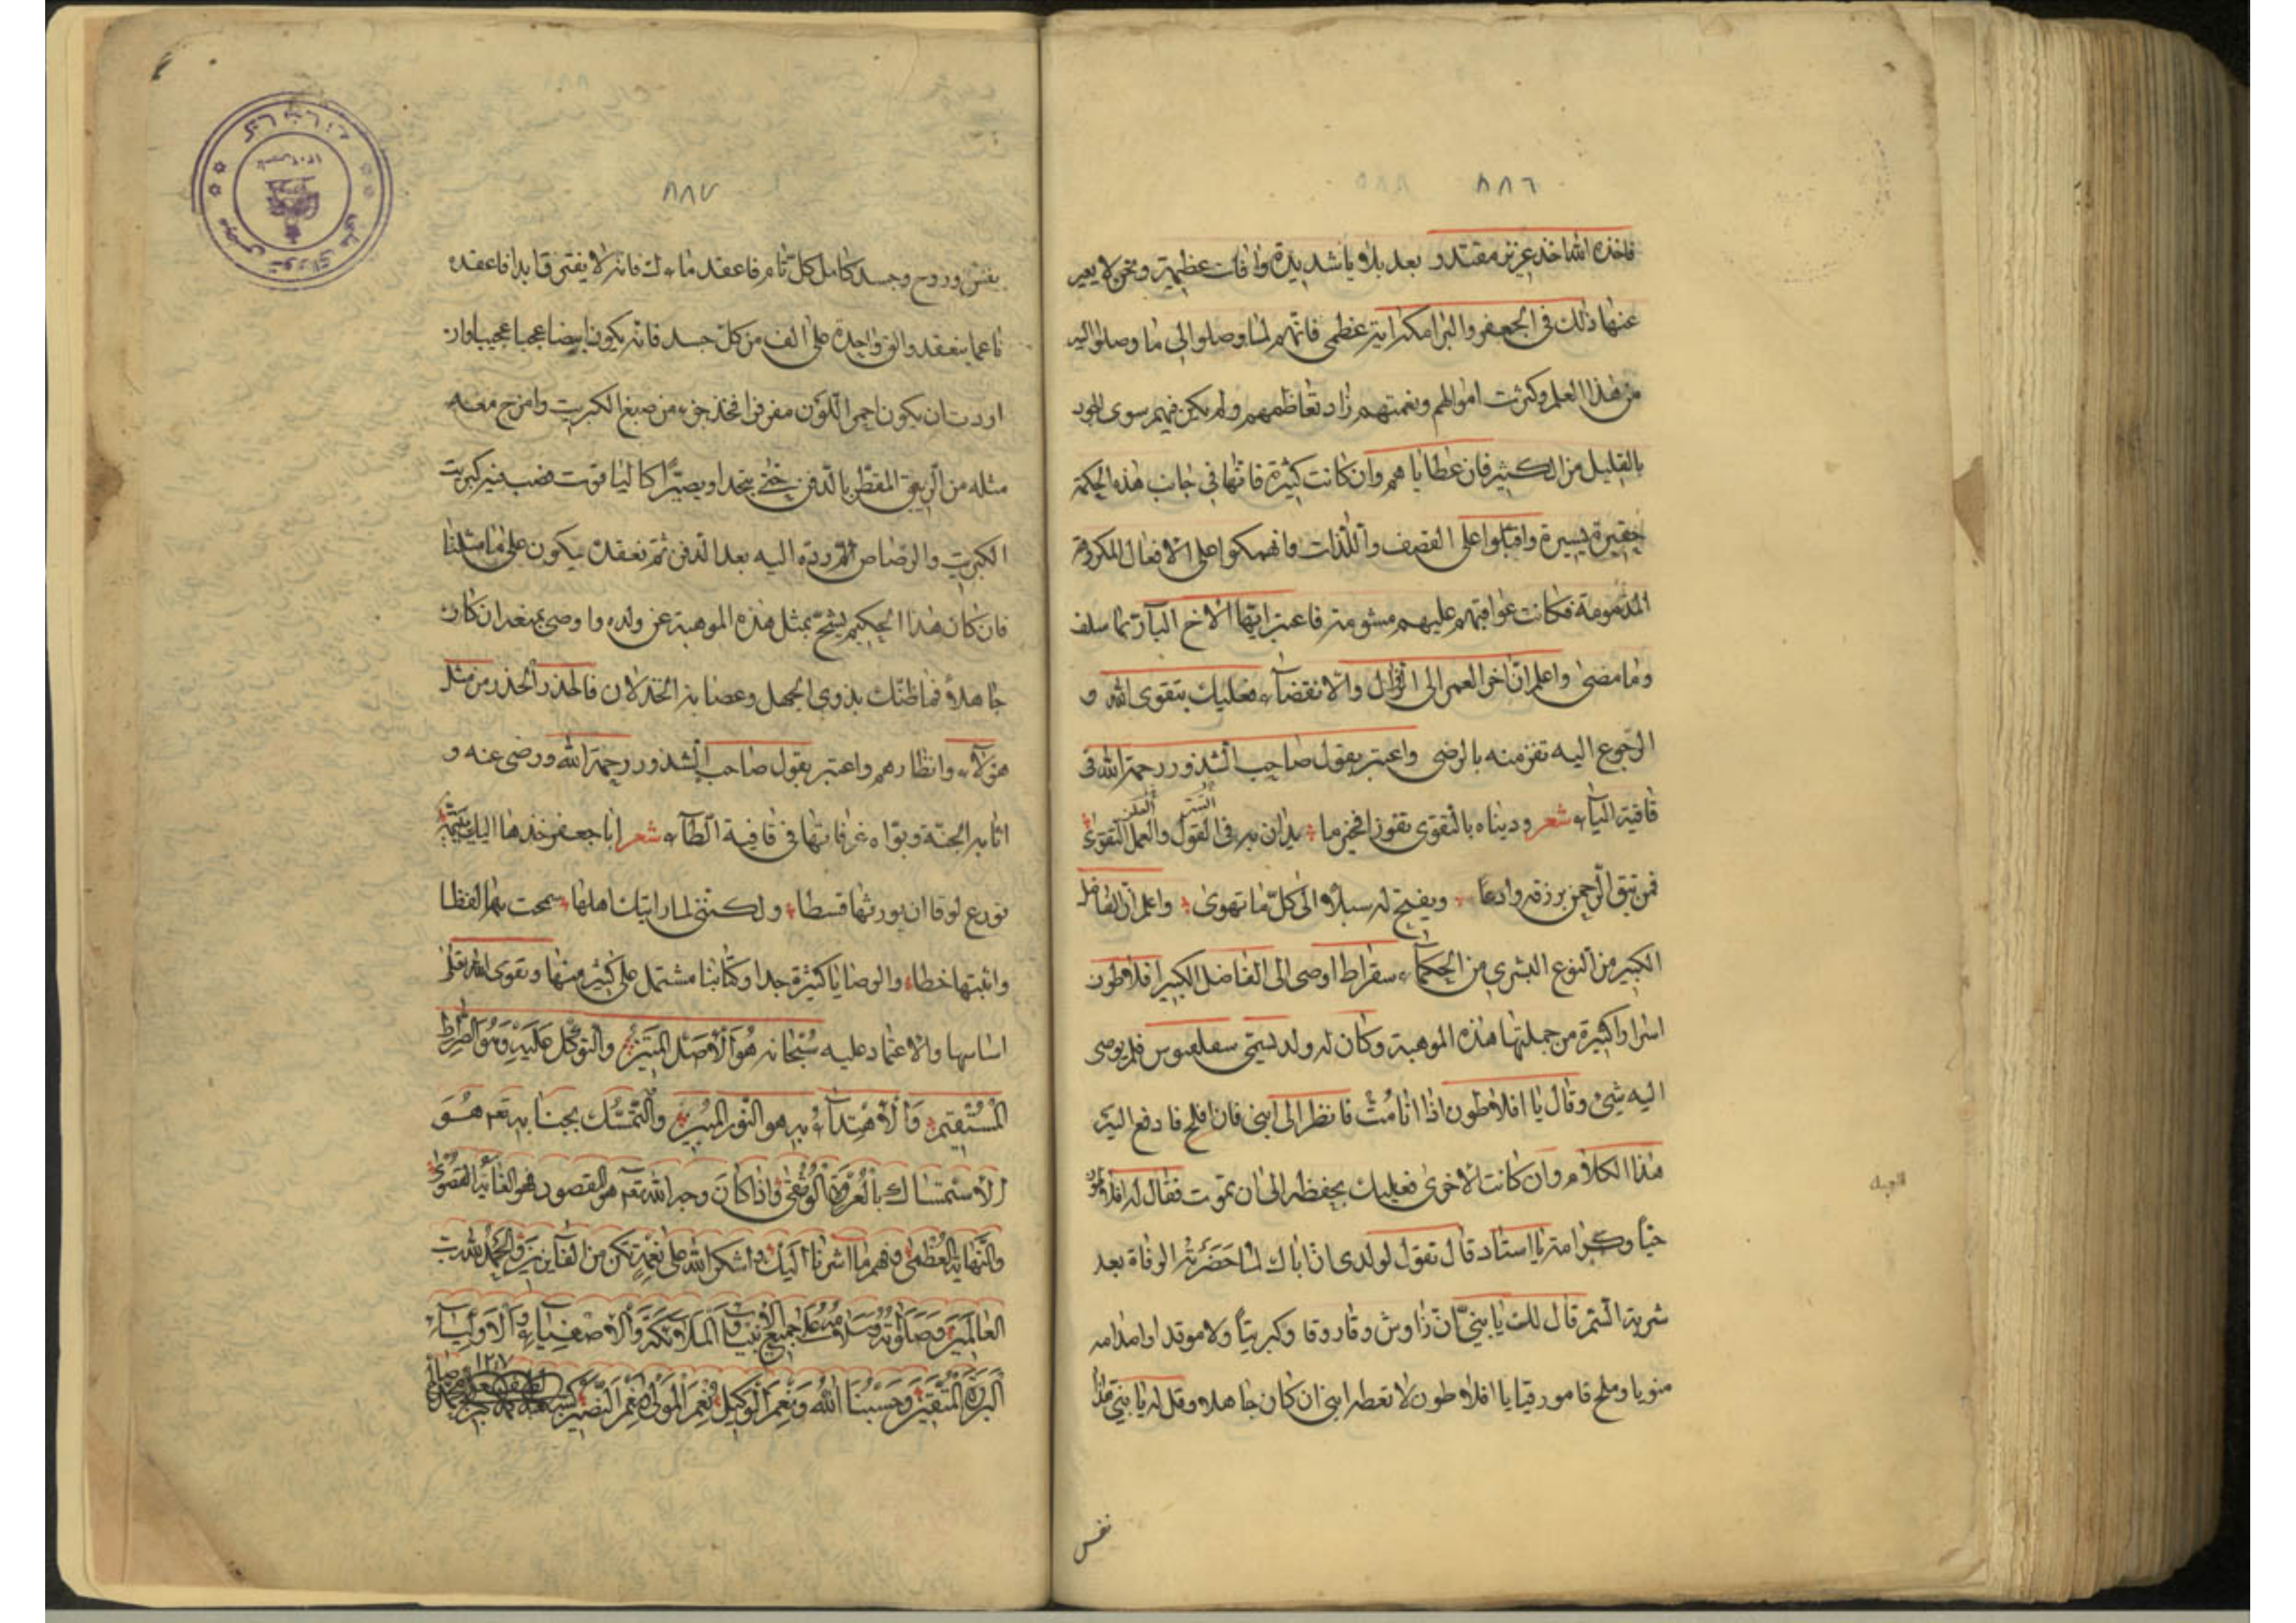 ٨٨٦
فاخذه الله اخذ عزيز مقتدر بعد بلاويا شديدة وافات عظيمة ونحن لا يعبر
عنها ذلك في الجعفر والبرامكة اية عظمى فانهم لما وصلوا الى ما وصلوا اليه
من هذا العلم وكثرت اموالهم ونعمتهم زاد تعاظمهم ولم يكن فيهم سوى الجود
بالقليل من الكثير فان عطاياهم وان كانت كثيرة فانها في جانب هذه الحكمة
حقيرة يسيرة واقبلوا على القصف واللذات وانهمكوا على الافعال المكروهة
المذمومة فكانت عواقبهم عليهم مشومة فاعتبر ايها الاخ البار بما سلف
وما مضى واعلم ان اخر العمر الى الزوال والانقضاء فعليك بتقوى الله و
الرجوع اليه تفز منه بالرضى واعتبر بقول صاحب الشذور رحمة الله في
قافية الياء شعر ودیناه بالتقوى نفوزا فحزما يدان به في القول والعمل التقوى
السر العلن
فمن يتق الرحمن يرزقه وادعا ويفتح له سبلا الى كل ما تهوى واعلم ان الفاضل
الكبير من النوع البشري من الحكماء سقراط اوصى الى الفاضل الكبير افلاطون
اسرارا كثيرة من جملتها هذه الموهبة وكان له ولد يسمى فلم يوصى
اليه شئ وقال يا افلاطون اذا انا مت فانظر الى ابنى فان افلح فادفع اليه
هذا الكلام وان كانت الاخرى فعليك بحفظه الى ان تموت فقال له افلاطون
حبا وكرامة يا استاد قال تقول لولدى ان اباك لما حضرته الوفاة بعد
شربة السم قال لك يا بنى ان زاوش وقاروقا وكبريتا ولا موقدا
منويا وملح قامورقيا يا افلاطون لا تعطه ابنى ان كان جاهلا وقل له يا بنى خذ
نفس
٨٨٧
بنفس وروح وجسد كامل كل تام فاعقد ماءك فانه لا يفتى قابدا فاعقده
ناعما ينعقد والق واحدة على الف من كل جسد فانه يكون ابيضا عجبا عجيبا وان
اردت ان يكون احمر اللون مفرفرا فخذ جزء من صبغ الكبريت وامزج معه
مثله من الزيبق المقطر بالدفن حتى يتحدا ويصيرا كالياقوت فصب فيه كبريت
الكبريت والرصاص ثم رده اليه بعد الدفن ثم نعقد يكون على ما مثلنا
فان كان هذا الحكيم يشح بمثل هذه الموهبة عن ولده واوصى بمنعه ان كان
جاهلا فما ظنك بذوى الجهل وعصابة الخذلان فالحذر الحذر من مثل
هؤلاء وانظارهم واعتبر بقول صاحب الشذور رحمة الله ورضى عنه و
اثابه الجنة وبواه غرفاتها في قافية الطاء شعر ابا جعفر خذها اليك يتيمة
تورع لوقا ان يورثها قسطا ولكننى لما رايتك اهلها سمحت بها لفظا
واثبتها خطا والوصايا كثيرة جدا وكتابنا مشتمل على كثير منها وتقوى الله تعالى
اساسها والاعتماد عليه سبحانه هو الاصل المتين والتوكل عليه وهو الصراط
المستقيم والاهتداء به هو النور المبين والتمسك بجنابه تعم هو
الاستمساك بالعروة الوثقى واذا كان وجه الله تعم هو المقصود فهو الغاية القصوى
والنهاية العظمى وفهم ما اشرنا اليك واشكر الله على نعمه تكن من الفايزين والحمد لله رب
العالمين وصلوته وسلامه على جميع الانبياء والملائكة والاصفياء والاولياء
البررة المتقين وحسبنا الله ونعم الوكيل نعم المولى ونعم النصير
١٢٨٧